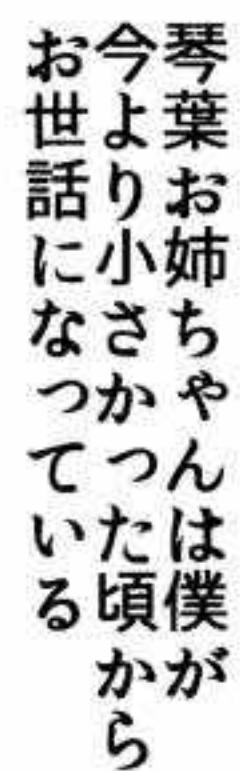 琴葉お姉ちゃんは僕が
今より小さかった頃から
お世話になっている